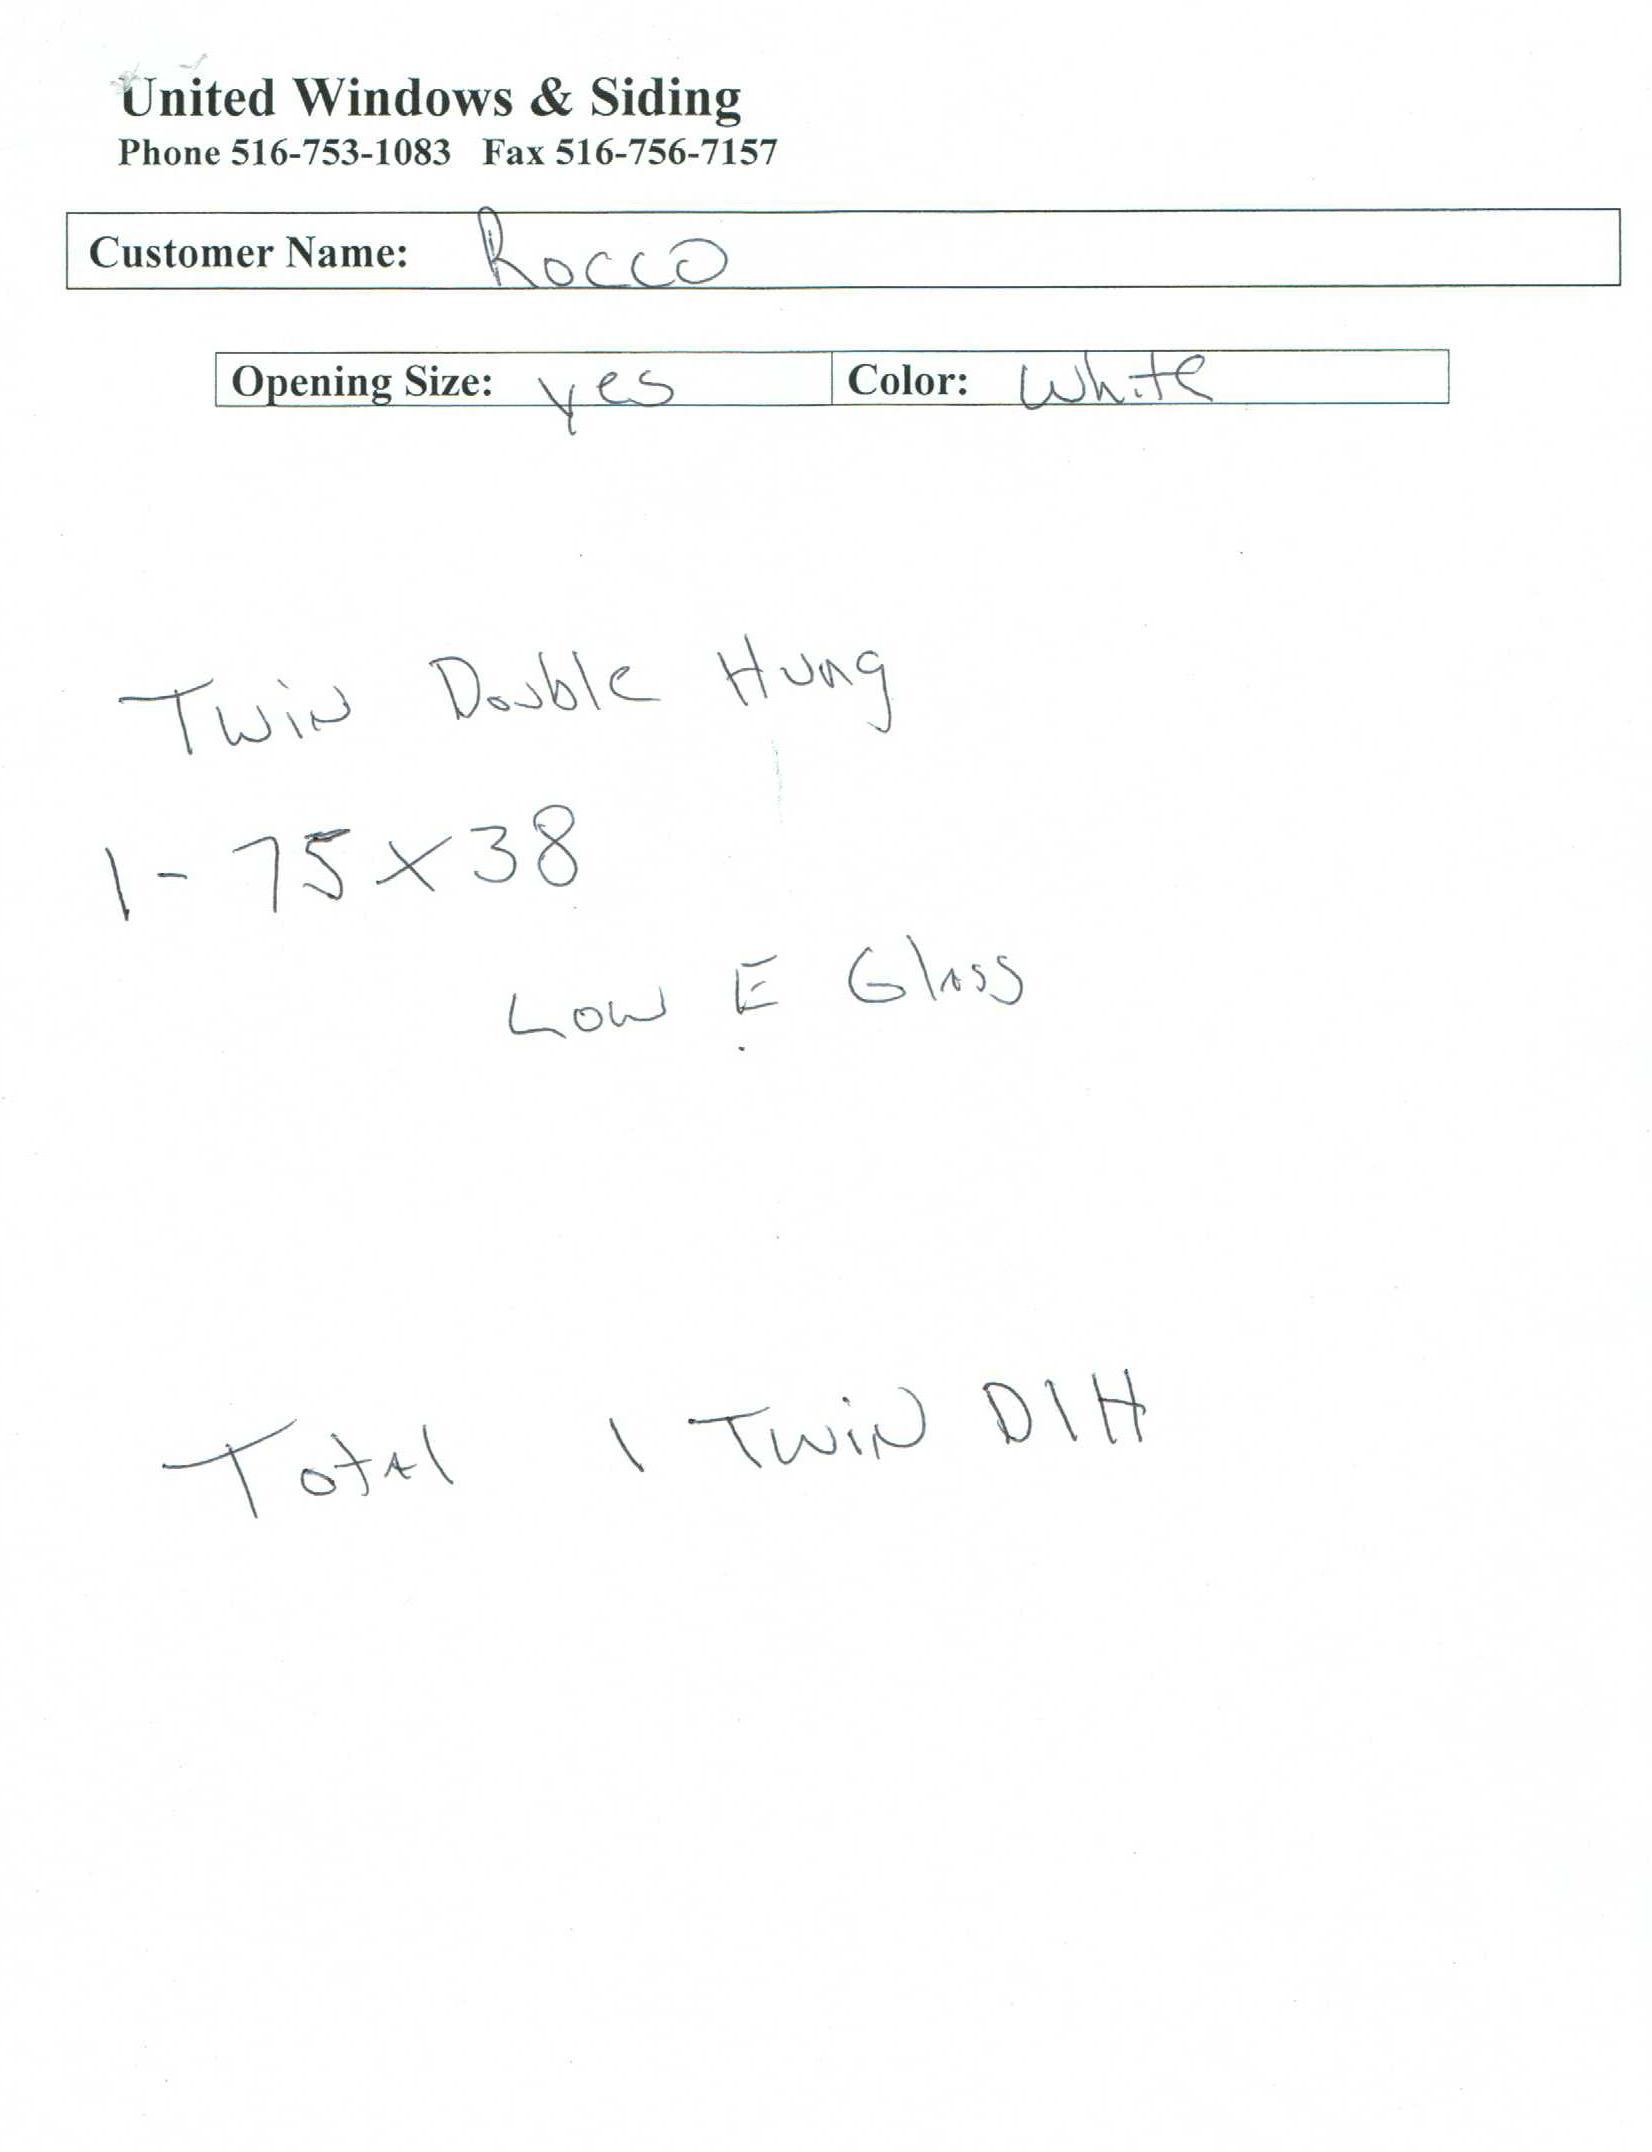 United Windows & Siding
Phone 516-753-1083 Fax 516-756-7157
Customer Name: Rocco
Opening Size: yes Color: White
Twin Double Hung
1 - 75 x 38
Low E Glass
Total 1 Twin D/H